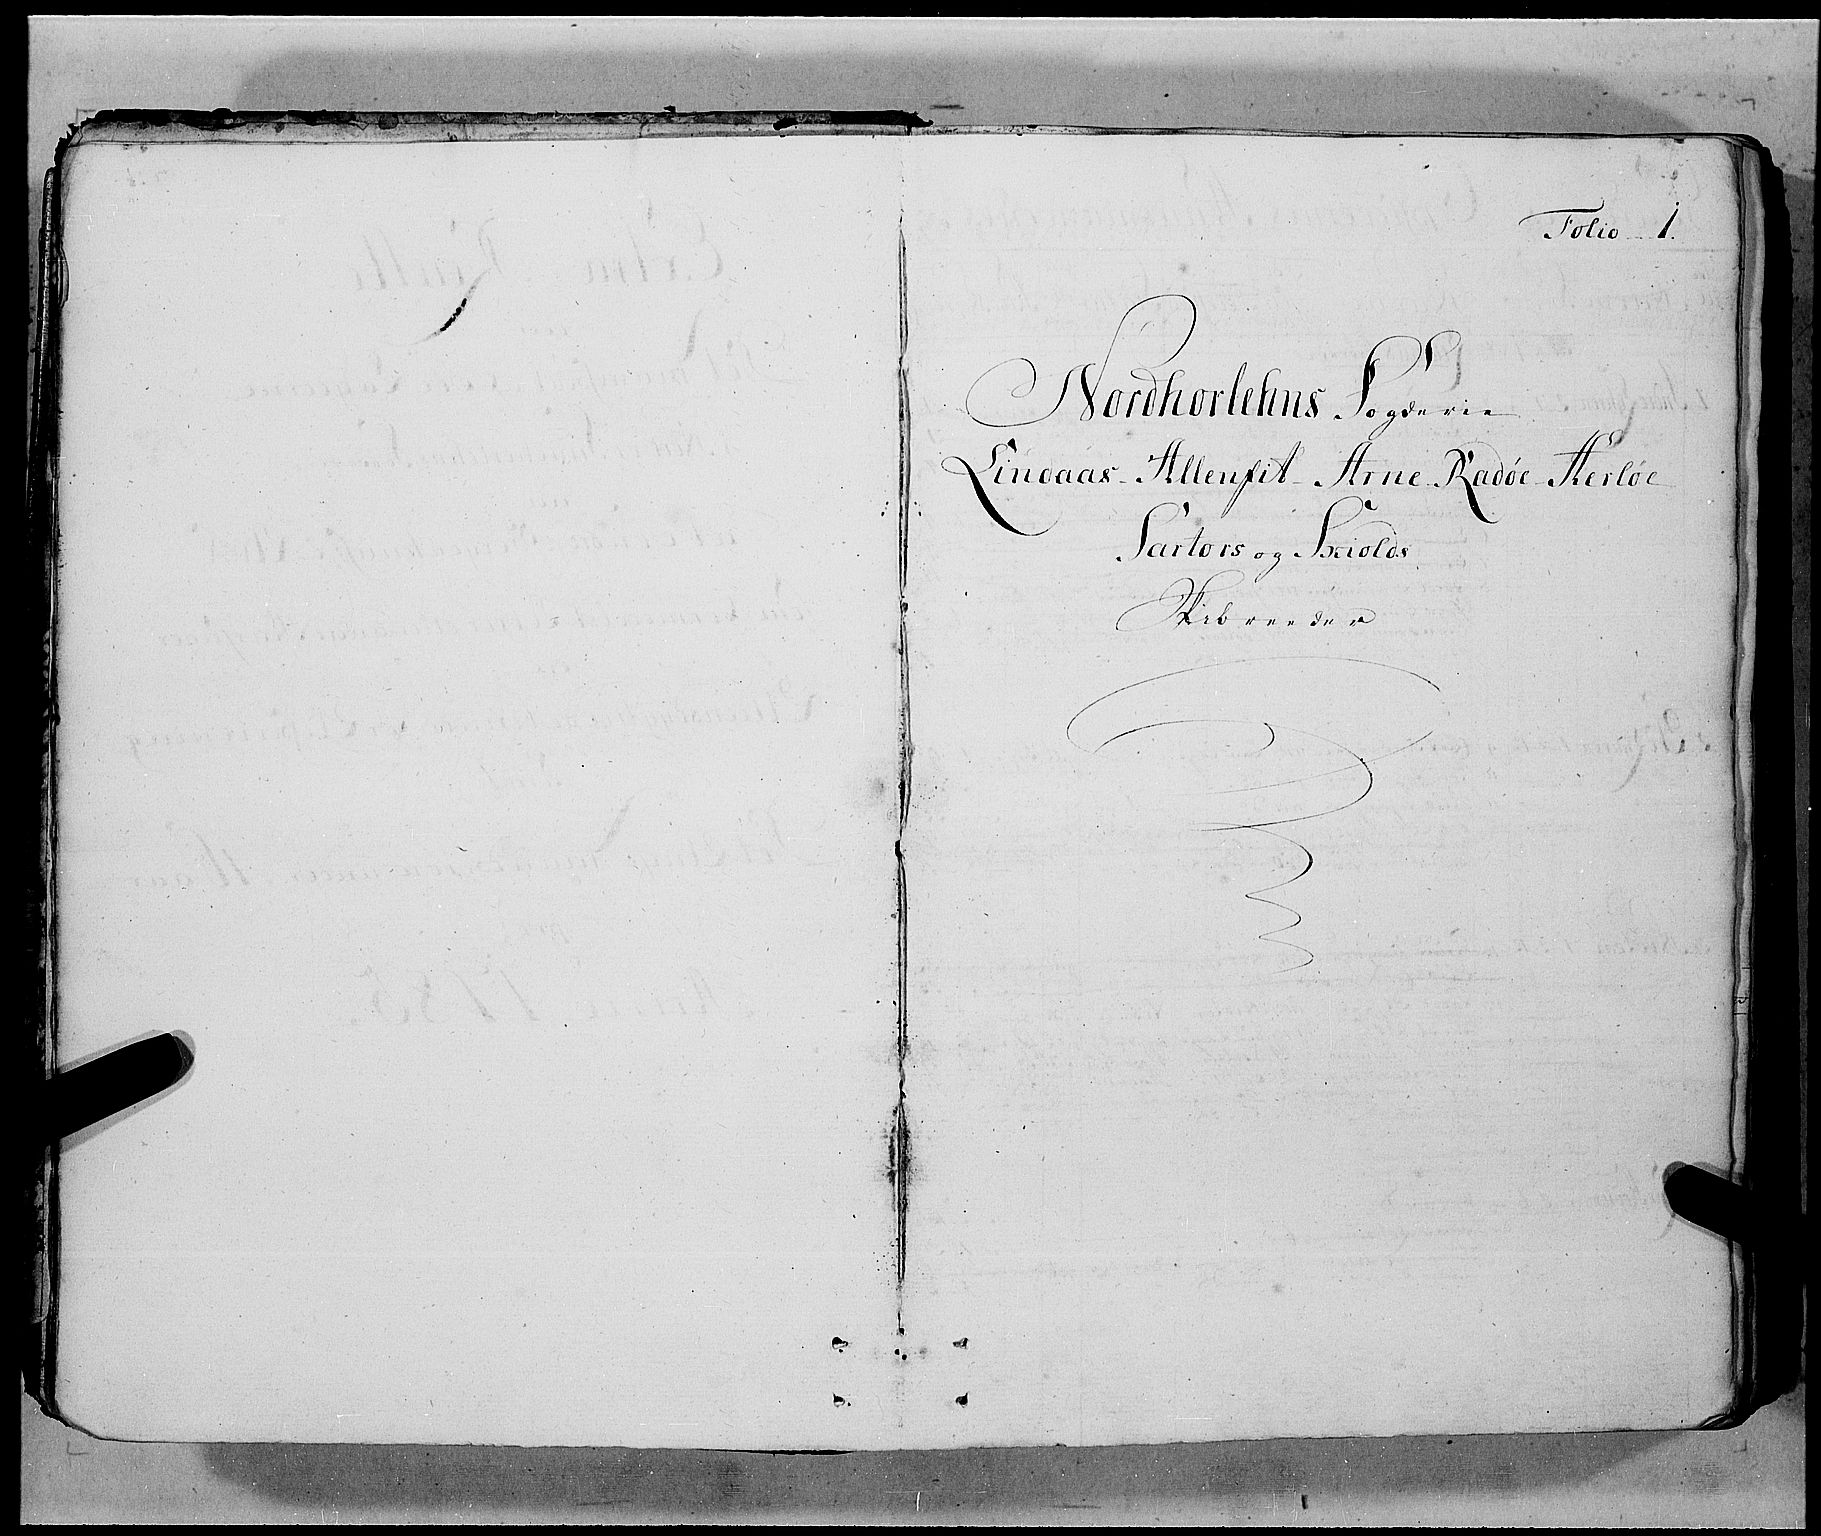 Folio 1.
Nordhorlehns Fogderie
Lindaas - Allenfit - Arne - Radøe - Herløe
Sartors og Skiolds
Skibreeder